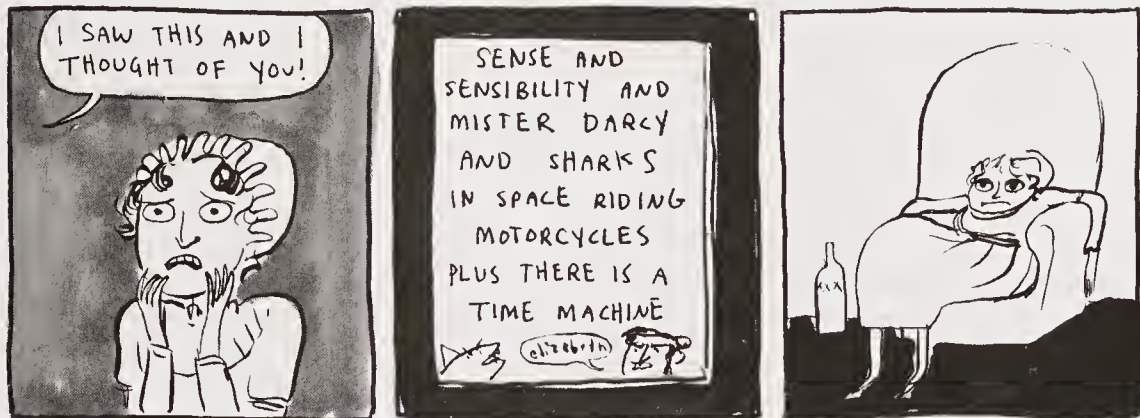 I SAW THIS AND I
THOUGHT OF YOU!
SENSE AND
SENSIBILITY AND
MISTER DARCY
AND SHARKS
IN SPACE RIDING
MOTORCYCLES
PLUS THERE IS A
TIME MACHINE
elizabeth
XXX